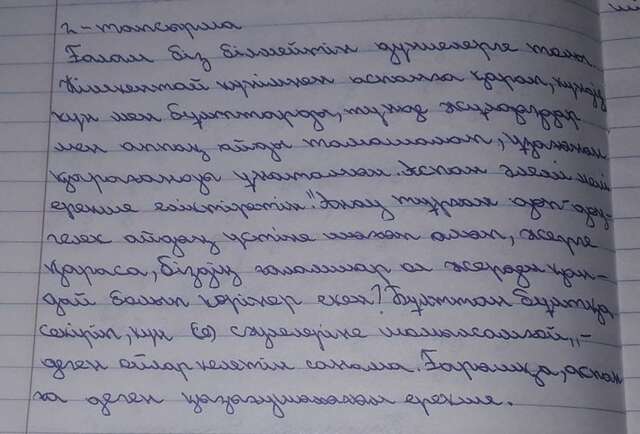 2-тапсырма
Ғалам біз білмейтін дүниелерге толы.
Кішкентай күнімнен аспанға қарап, күндіз
күн мен бұлттарды, түнде жұлдыздар
мен аппақ айды тамашалап, ұзақтан
қарағанды ұнатамын. Аспан әлемі мені
ерекше еліктіретін. "Анау тұрған дөп-дөң-
гелек айдың үстіне шығып алып, жерге
қараса, біздің ғаламшар ол жерден қан-
дай болып көрінер екен? Бұлттан бұлтқа
секіріп, күн сәулелеріне шомылсамғой," -
деген ойлар келетін санама. Ғарышқа, аспан-
ға деген қызығушылығым ерекше.